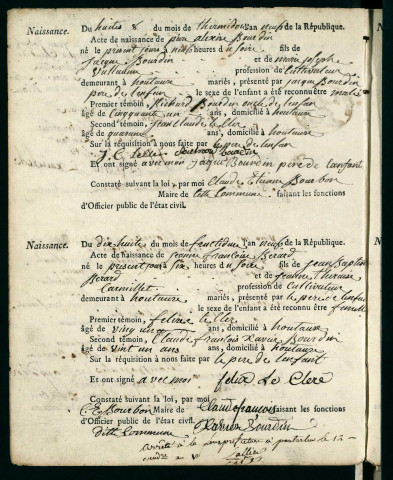 Naissance. Du huites 8 du mois de thermidor l'an neuf de la République.
Acte de naissance de jean alexie Bourdin
né le présent jour à neuf heures du soire fils de
jacque Bourdin et de marie josephe
profession de Cultivateur
demeurant à houtaux mariés, présenté par jacque Bourdin
pere de lenfan le sexe de l'enfant a été reconnu être male
Premier témoin, Richard Bourdin oncle de lenfan
âgé de cinqquante un ans, domicilié à houtaux
Second témoin, jean Claude le Cler
âgé de quarante ans, domicilié à houtaux
Sur la réquisition à nous faite par le pere de lenfan
J. C. leCler Bourdin
Et ont signé avec moi jaque Bourdin pere de lanfant
Constaté suivant la loi, par moi Claude Etiene Bourbon
Maire de Cette Commune faisant les fonctions
d'Officier public de l'état civil.
Naissance. Du dix huite du mois de fructidor l'an neuf de la République.
Acte de naissance de jeanne francoise Berard
né le présent jour à six heures du soire fils de jean Baptiste
Berard et de
profession de Cultivateur
demeurant à houtaux mariés, présenté par le pere de lenfan
le sexe de l'enfant a été reconnu être femelle
Premier témoin, felixe le Cler
âgé de vingt un ans, domicilié à houtaux
Second témoin, Claude francois Xavie Bourdin
âgé de vint un ans, domicilié à houtaux
Sur la réquisition à nous faite par le pere de lenfant
Et ont signé avec moi felix Le Clerc
Constaté suivant la loi, par moi
C. E. Bourbon Maire de Claude francois faisant les fonctions
d'Officier public de l'état civil. Xavie Bourdin
ditte Commune